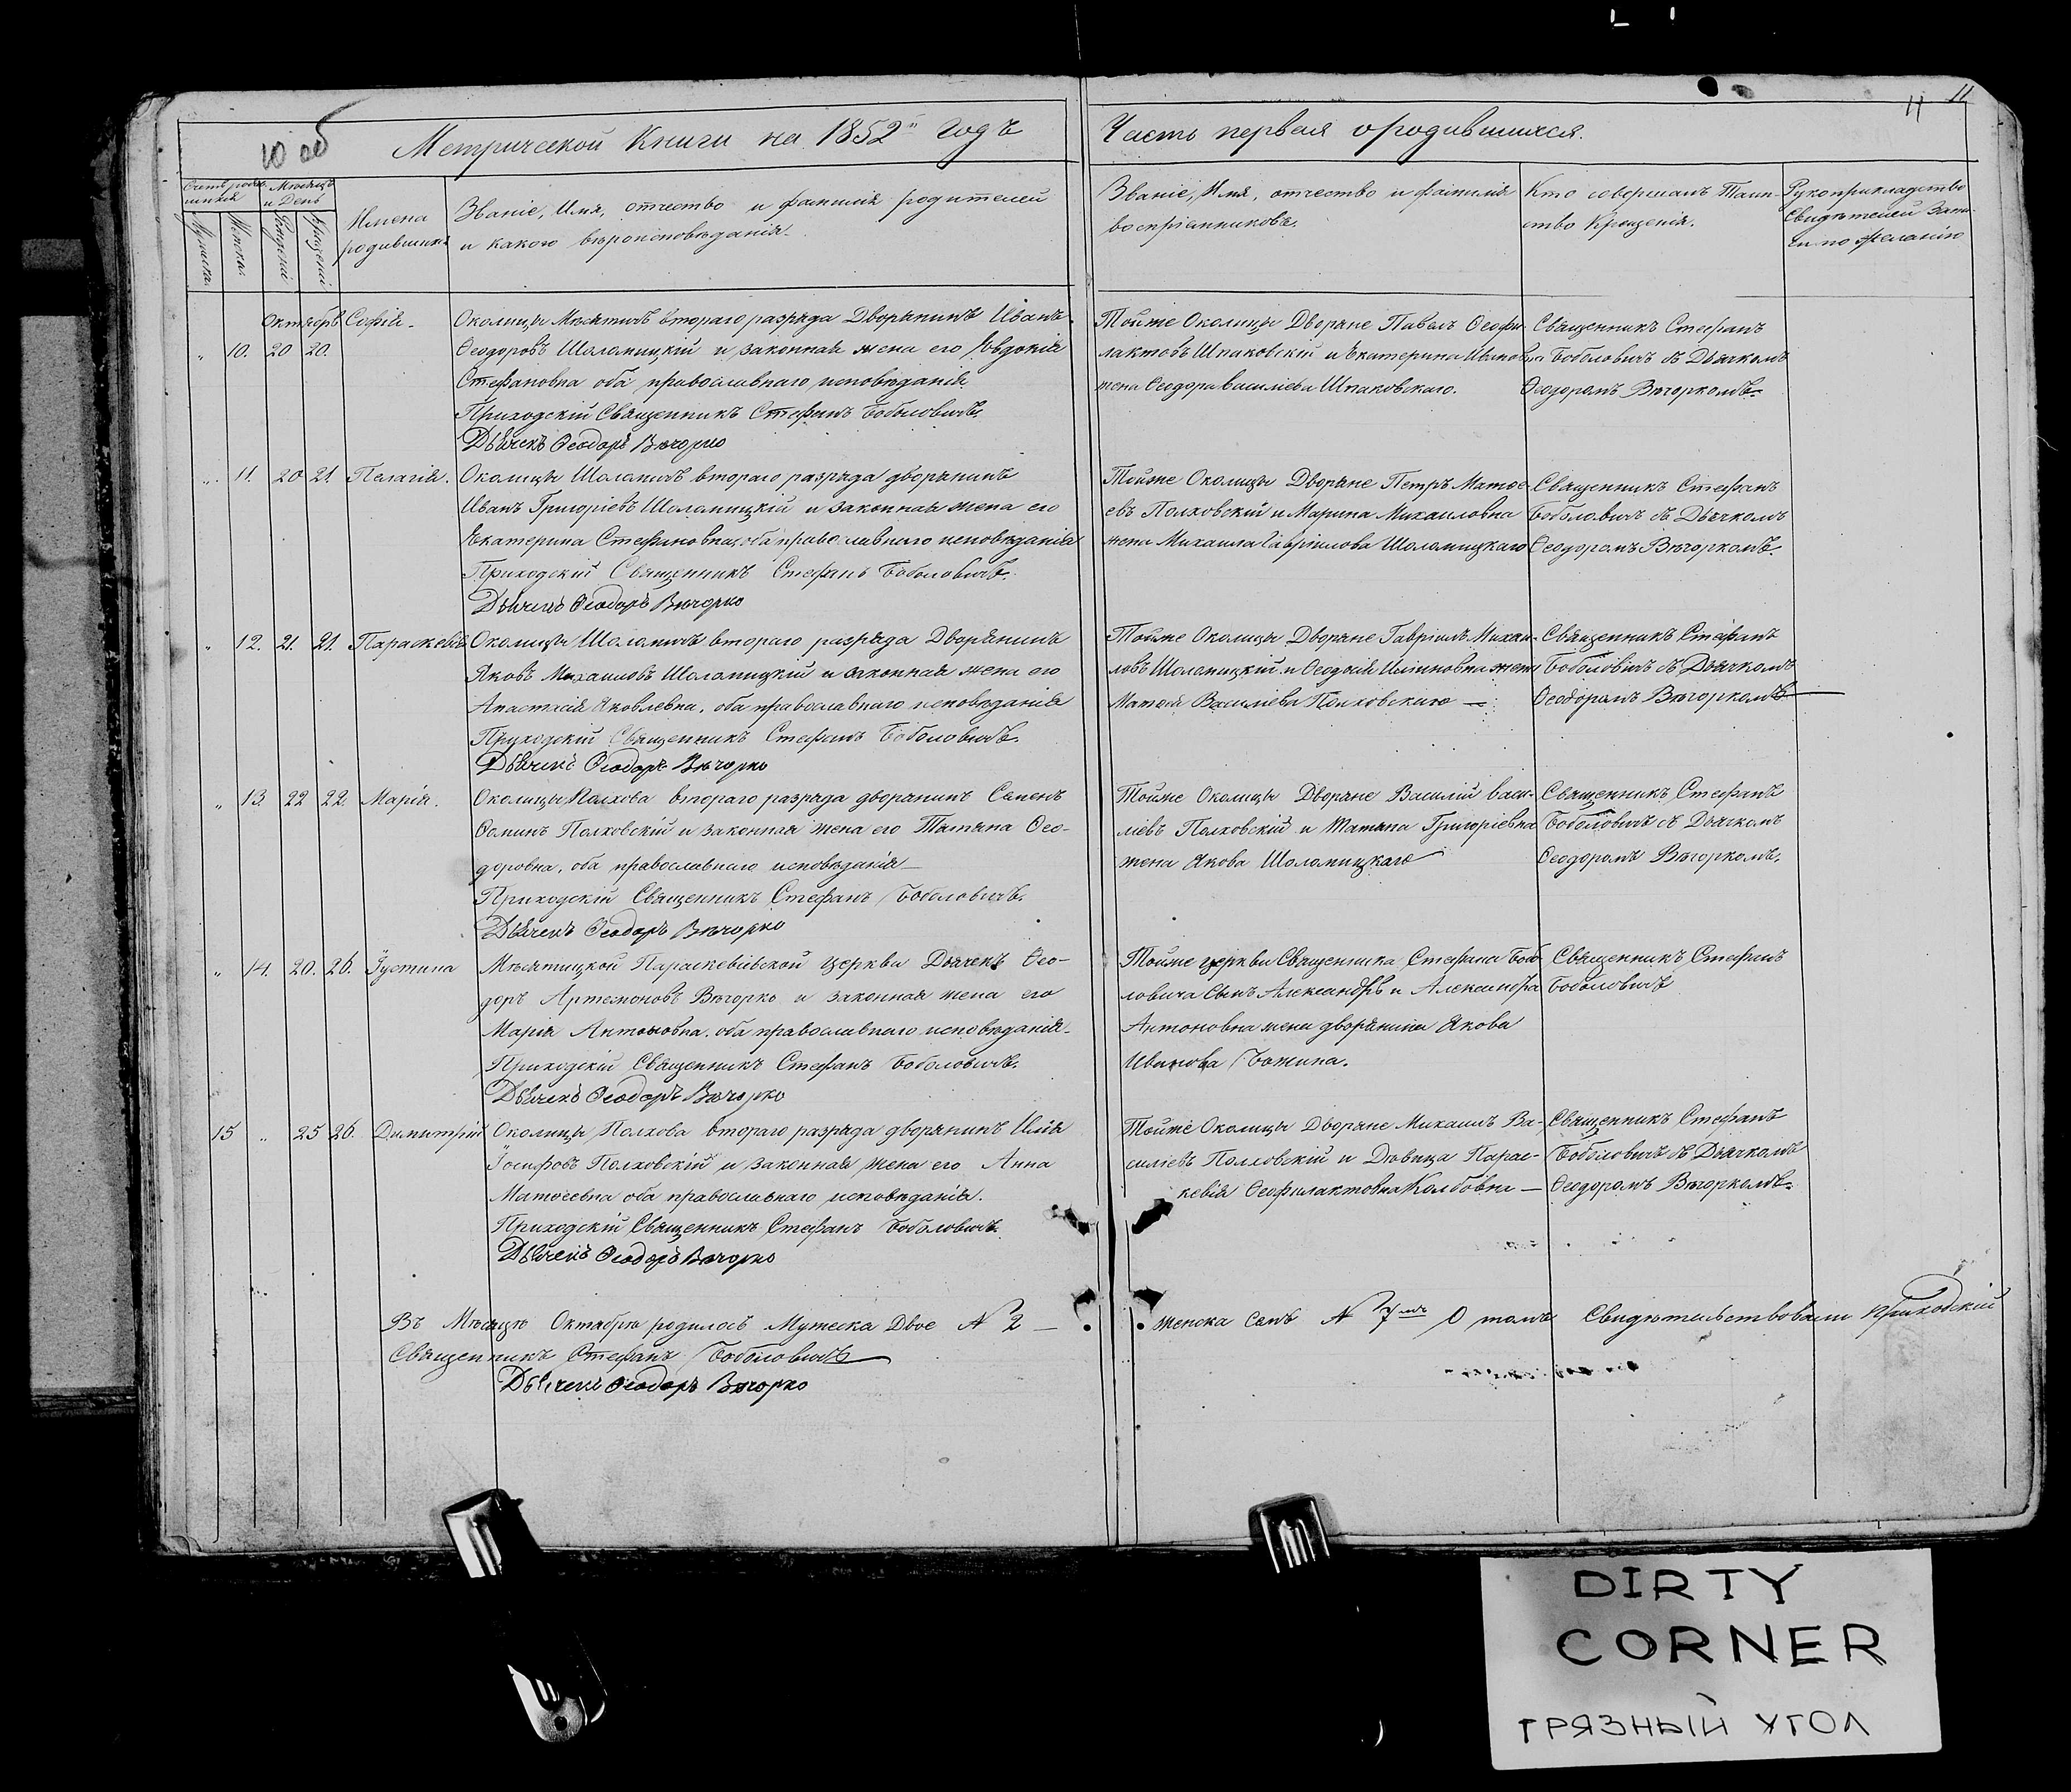 11 11
10 об
Метрической Книги на 1852й годъ
Часть первая о родившихся.
Мѣсяцъ
и День
Мужеска.
Женска.
Рожденія
Крещенія
Имена
родившихъ
Званіе, Имя, отчество и фамилія родителей
и какого вѣроисповѣданія.
Званіе, Имя, отчество и фамилія
воспріемниковъ.
Кто совершалъ Таин-
ство Крещенія.
Рукоприкладство
Свидѣтелей Запи-
си по желанію
Октябрь
„ 10. 20 20.
Софія.
Околицы Мѣсятичъ втораго разряда Дворянинъ Иванъ
Ѳеодоровъ Шоломицкій и законная жена его Евдокія
Стефановна оба православнаго исповѣданія
Приходскій Священникъ Стефанъ Боболовичъ.
Дьячекъ Ѳеодоръ Вѣчорко
Тойже Околицы Дворяне Павелъ Ѳеофи-
лактовъ Шпаковскій и Екатерина Иванов
жена Ѳеодора Василіева Шпаковскаго.
Священникъ Стефанъ
Боболовичъ съ Дьячкомъ
Ѳеодоромъ Вѣчоркомъ.
„ 11. 20 21. Пелагія.
Околицы Шоломичъ втораго разряда дворянинъ
Иванъ Григоріевъ Шоломицкій и законная жена его
Екатерина Стефановна, оба православнаго исповѣданія
Приходскій Священникъ Стефанъ Боболовичъ.
Дьячекъ Ѳеодоръ Вѣчорко
Тойже Околицы Дворяне Петръ Матѳе-
евъ Полховскій и Марина Михаиловна
жена Михаила Гавріилова Шоломицкаго
Священникъ Стефанъ
Боболовичъ съ Дьячкомъ
Ѳеодоромъ Вѣчоркомъ.
„ 12. 21. 21. Параскевія
Околицы Шоломичъ втораго разряда Дворянинъ
Яковъ Михаиловъ Шоломицкій и законная жена его
Анастасія Яковлевна, оба православнаго исповѣданія
Приходскій Священникъ Стефанъ Боболовичъ.
Дьячекъ Ѳеодоръ Вѣчорко
Тойже Околицы Дворяне Гавріилъ Михаи-
ловъ Шоломицкій и Ѳеодкія жена
Матѳея Василіева Полховскаго —
Священникъ Стефанъ
Боболовичъ съ Дьячкомъ
Ѳеодоромъ Вѣчоркомъ
„ 13. 22 22. Марія.
Околицы Полхова втораго разряда дворянинъ Семенъ
Ѳоминъ Полховскій и законная жена его Татьяна Ѳео-
доровна, оба православнаго исповѣданія —
Приходскій Священникъ Стефанъ Боболовичъ.
Дьячекъ Ѳеодоръ Вѣчорко
Тойже Околицы Дворяне Василій Васи-
ліевъ Полховскій и Татьяна Григоріевна
жена Якова Шоломицкаго
Священникъ Стефанъ
Боболовичъ съ Дьячкомъ
Ѳеодоромъ Вѣчоркомъ.
„ 14. 20. 26. Іустина
Мѣсятицкой Параскевіевской церкви Дьячекъ Ѳео-
доръ Артемоновъ Вѣчорко и законная жена его
Марія Антоновна. оба православнаго исповѣданія.
Приходскій Священникъ Стефанъ Боболовичъ.
Дьячекъ Ѳеодоръ Вѣчорко
Тойже церкви Священника Стефана Бобо-
ловича Сынъ Александръ и Александра
Антоновна жена дворянина Якова
Иванова Божина.
Священникъ Стефанъ
Боболовичъ
15 „ 25 26. Димитрій
Околицы Полхова втораго разряда дворянинъ Илія
Іосифовъ Полховскій и законная жена его Анна
Матѳеевна оба православнаго исповѣданія.
Приходскій Священникъ Стефанъ Боболовичъ.
Дьячекъ Ѳеодоръ Вѣчорко
Тойже Околицы Дворяне Михаилъ Ва-
силіевъ Полховскій и Дѣвица Парас-
кевія Ѳеофилактовна Колбовна —
Священникъ Стефанъ
Боболовичъ съ Дьячкомъ
Ѳеодоромъ Вѣчоркомъ.
Въ Мѣсяцѣ Октябрѣ родилось Мужеска Двое N 2 — женска Семь N 7мъ О томъ Свидѣтельствовали Приходскій
Священникъ Стефанъ Боболовичъ
Дьячекъ Ѳеодоръ Вѣчорко
DIRTY
CORNER
ГРЯЗНЫЙ УГОЛ